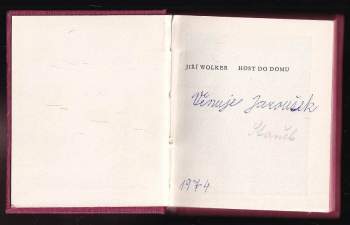 JIŘÍ WOLKER HOST DO DOMU
Věnuje Jaroušek
1974